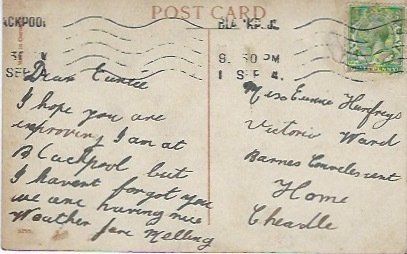 POST CARD
BLACKPOOL
9. 30 PM
1 SEP 4.
Dear Eunice
I hope you are
improving I am at
Blackpool but
I havent forgot you
we are having nice
Weather
Miss Eunice Humfreys
Victoria Ward
Barnes Convelescent
Home
Cheadle